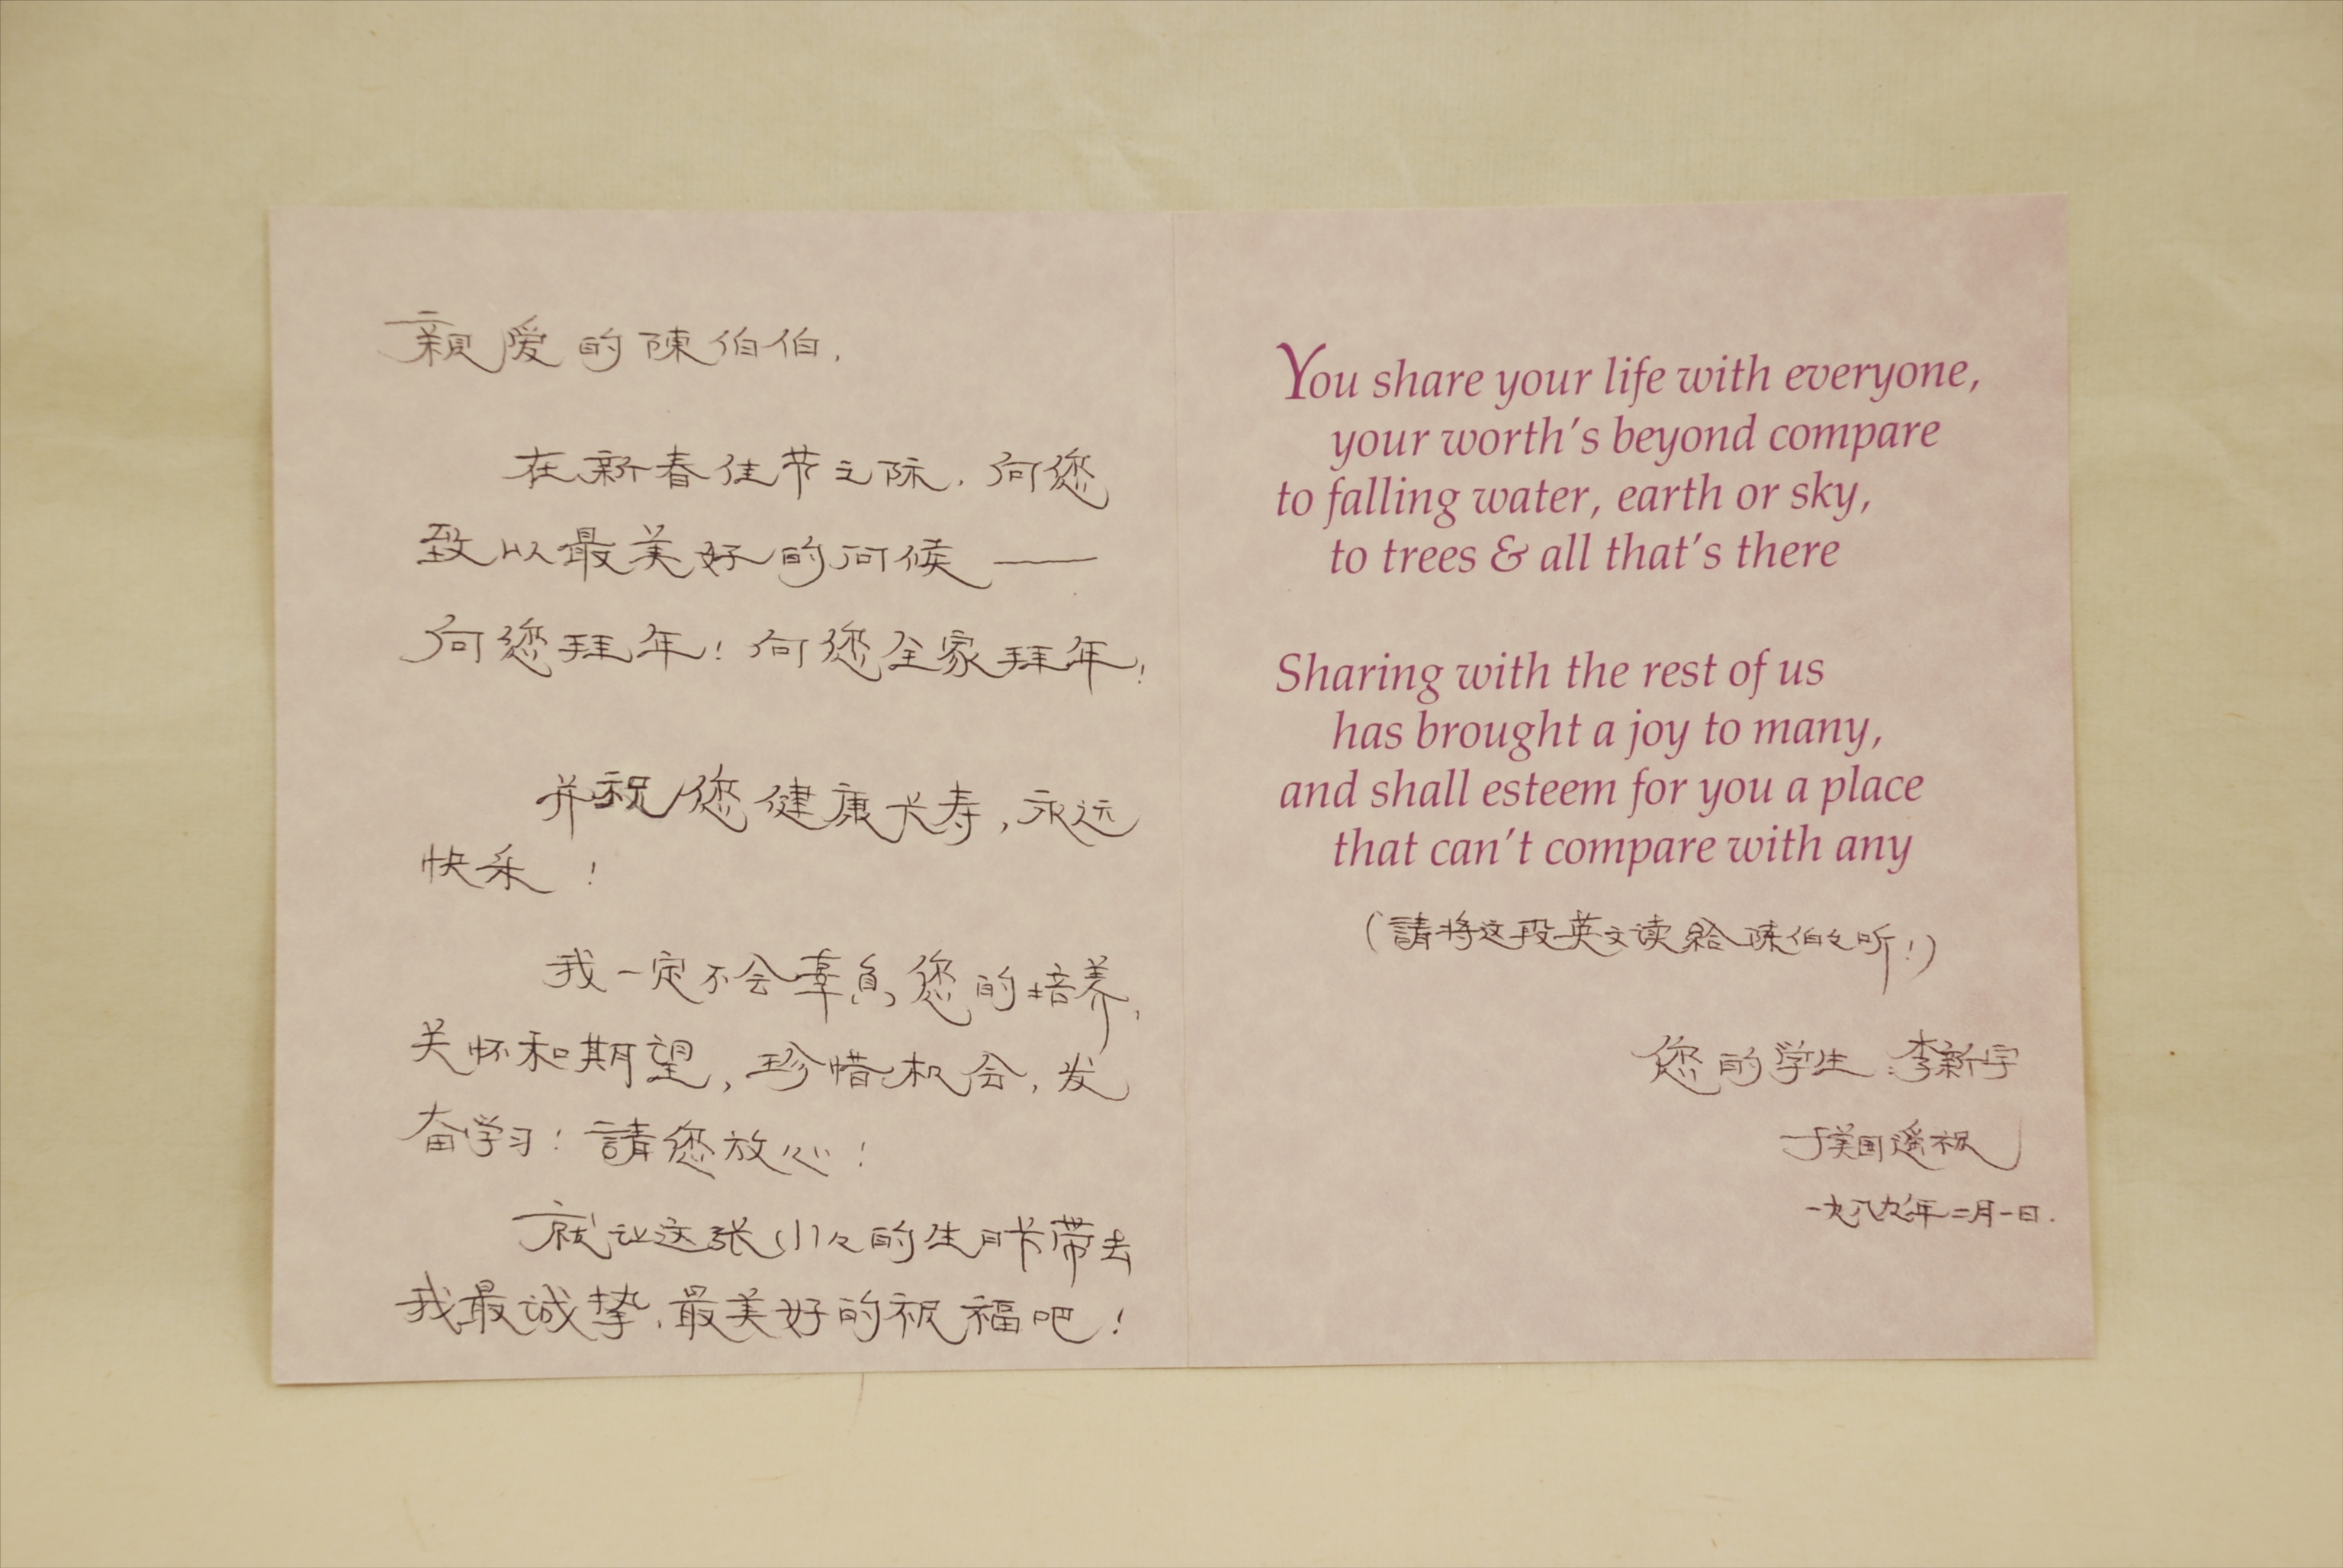 親爱的陳伯伯，
在新春佳节之际，向您
致以最美好的问候——
向您拜年！向您全家拜年！
并祝您健康长寿，永远
快乐！
我一定不会辜负您的培养，
关怀和期望，珍惜机会，发
奋学习！請您放心！
就让这张小々的生日卡带去
我最诚挚，最美好的祝福吧！
You share your life with everyone,
your worth's beyond compare
to falling water, earth or sky,
to trees & all that's there
Sharing with the rest of us
has brought a joy to many,
and shall esteem for you a place
that can't compare with any
（請将这段英文读给陈伯々听！）
您的学生 李新宇
于美国遥祝
一九八九年二月一日.